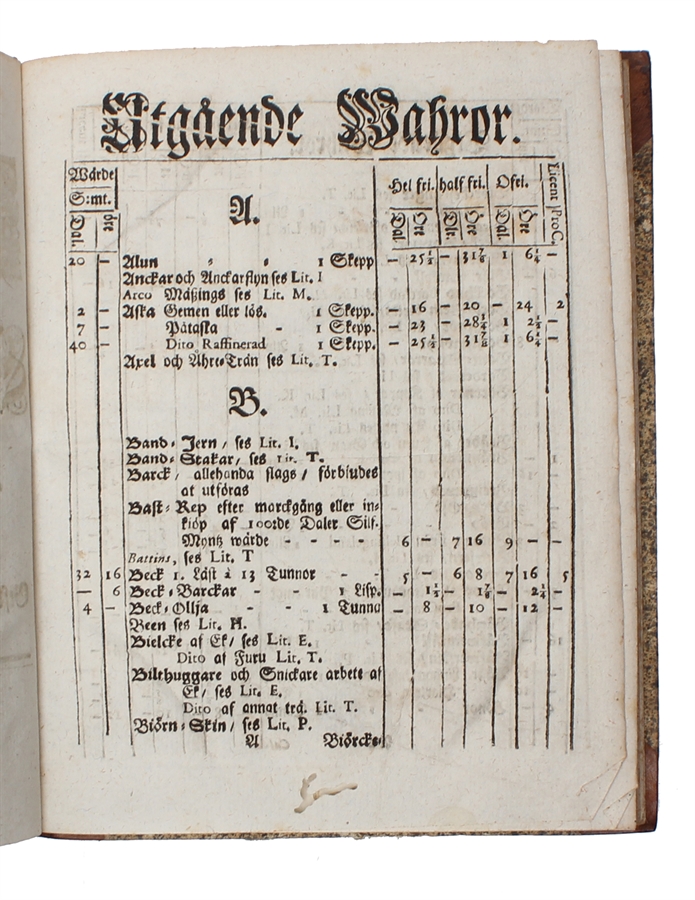 Utgående Wahror.
Wärde Hel fri. half fri. Ofri. Licent ProC.
S:mt.
Dal. öre A. Dal. Öre Dlr. Öre Dal. Öre
20 – Alun = = 1 Skepp – 25 1/2 – 31 7/8 1 6 1/4 –
Anckar och Anckarflyn ses Lit. I
Arco Mäßings ses Lit. M.
2 – Aska Gemen eller lös. 1 Skepp. – 16 – 20 – 24 2
7 – Pátaska – 1 Skepp. – 23 – 28 3/4 1 2 1/2 –
40 – Dito Raffinerad 1 Skepp. – 25 1/2 – 31 7/8 1 6 1/4 –
Axel och Åhre=Trän ses Lit. T.
B.
Band= Jern / ses Lit. I.
Band= Stakar / ses Lit. T.
Barck / allehanda slags / förbiudes
at utföras
Bast= Rep efter marckgång eller in=
kiöp af 100:de Daler Silf.
Myntz wärde – – – – 6 – 7 16 9 – –
Battins, ses Lit. T
32 16 Beck 1. Läst à 13 Tunnor – – 5 – 6 8 7 16 5
– 6 Beck= Barckar – – 1 Lisp. – 1 1/2 – 1 7/8 – 2 1/4 –
4 – Beck= Ollja – – 1 Tunna – 8 – 10 – 12 –
Been ses Lit. H.
Bielcke af Ek / ses Lit. E.
Dito af Furu Lit. T.
Bilthuggare och Snickare arbete af
Ek / ses Lit. E.
Dito af annat trä. Lit. T.
Biörn= Skin / ses Lit. P.
A Biörcke=